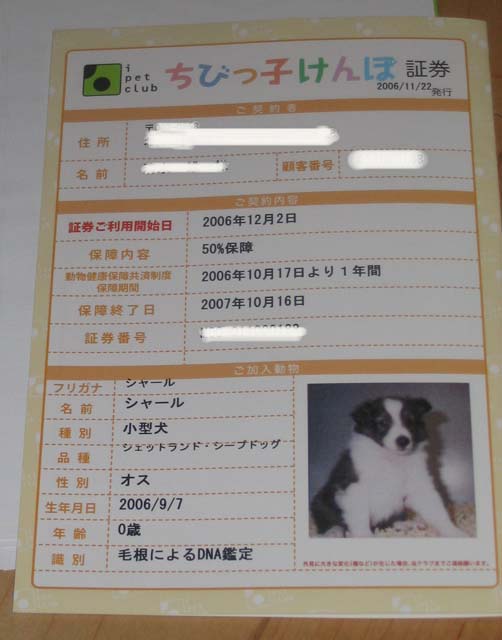 i
pet
club
ちびっ子けんぽ 証券
2006/11/22発行
ご契約者
住所 〒
名前
顧客番号
ご契約内容
証券ご利用開始日 2006年12月2日
保障内容 50%保障
動物健康保障共済制度
保障期間 2006年10月17日より1年間
保障終了日 2007年10月16日
証券番号
ご加入動物
フリガナ シャール
名前 シャール
種別 小型犬
品種 シェットランド・シープドッグ
性別 オス
生年月日 2006/9/7
年齢 0歳
識別 毛根によるDNA鑑定
外見に大きな変化(傷など)が生じた場合、当クラブまでご連絡願います。